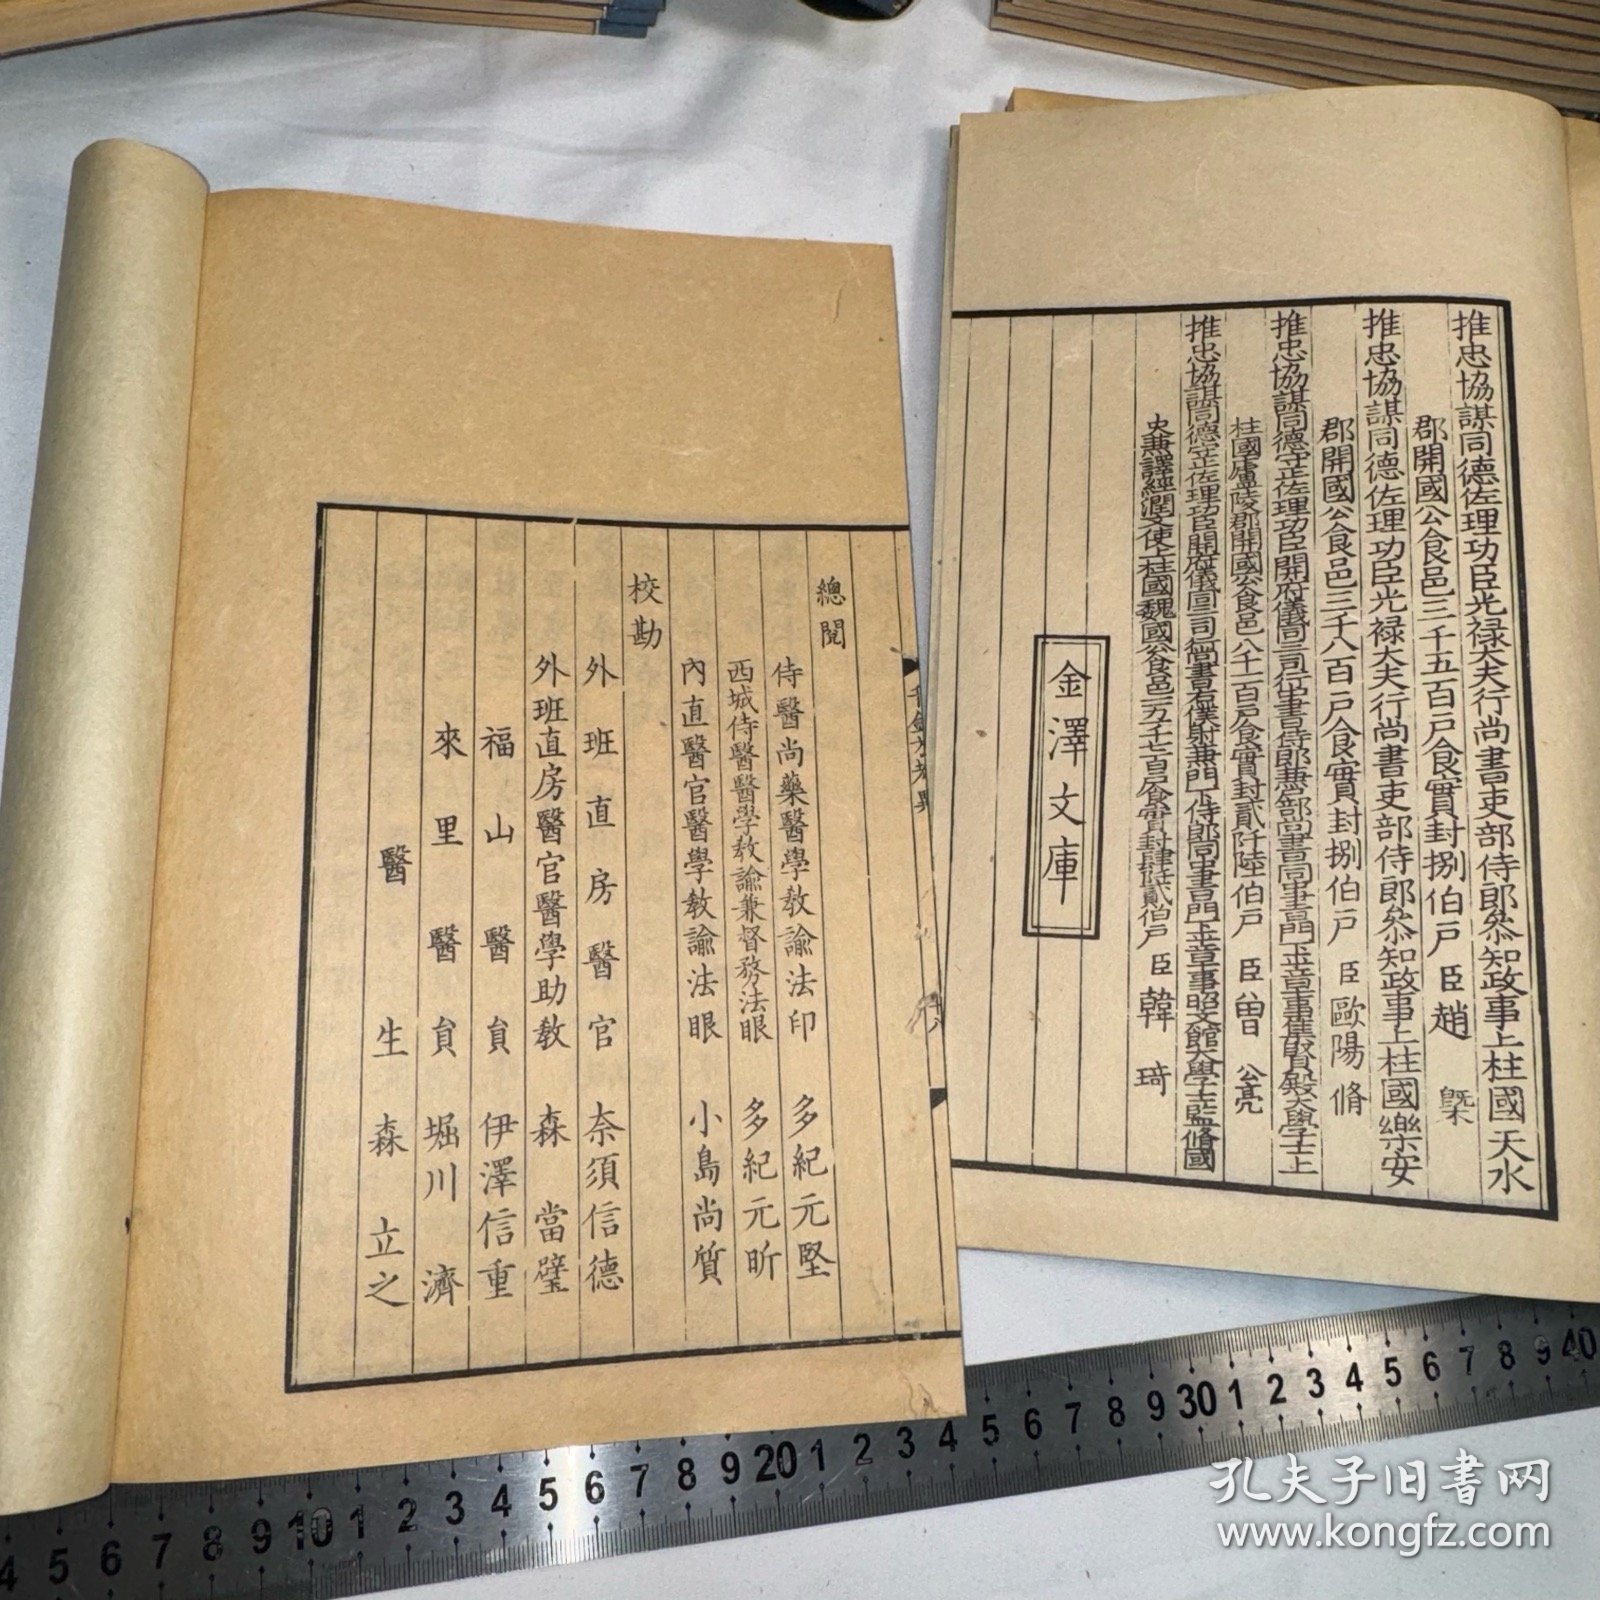 推忠協謀同德佐理功臣光祿大夫行尚書吏部侍郎叅知政事上柱國天水
郡開國公食邑三千五百戶食實封捌伯戶 臣趙 槩
推忠協謀同德佐理功臣光祿大夫行尚書吏部侍郎叅知政事上柱國樂安
郡開國公食邑三千八百戶食實封捌伯戶 臣歐陽脩
推忠協謀同德守正佐理功臣開府儀同三司行中書侍郎兼戶部尚書同中書門下平章事集賢殿大學士上
柱國廬陵郡開國公食邑八千一百戶食實封貳阡陸伯戶 臣曾 公亮
推忠協謀同德守正佐理功臣開府儀同三司行尚書右僕射兼門下侍郎同中書門下平章事昭文館大學士監脩國
史兼譯經潤文使上柱國魏國公食邑一万一千七百戶食實封肆阡貳伯戶 臣韓 琦
金澤文庫
千金方考異
十八
總閱
侍醫尚藥醫學教諭法印 多紀元堅
西城侍醫醫學教諭兼督務法眼 多紀元昕
內直醫官醫學教諭法眼 小島尚質
校勘
外班直房醫官 奈須信德
外班直房醫官醫學助教 森 當璧
福山醫員 伊澤信重
來里醫員 堀川 濟
醫生 森 立之
4 5 6 7 8 9 10 1 2 3 4 5 6 7 8 9 20 1 2 3 4 5 6 7 8 9 30 1 2 3 4 5 6 7 8 9 40
孔夫子旧书网
www.kongfz.com